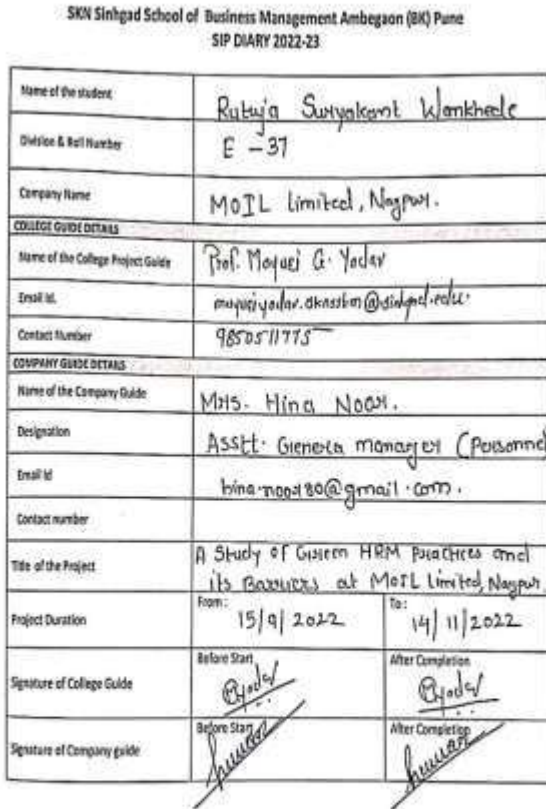 SKN Sinhgad School of Business Management Ambegaon (BK) Pune
SIP DIARY 2022-23
Name of the student Rutuja Suryakant Wankhede
Division & Roll Number E - 37
Company Name MOIL Limited, Nagpur.
COLLEGE GUIDE DETAILS
Name of the College Project Guide Prof. Mayuri G. Yadav
Email Id.
Contact Number 9850511775
COMPANY GUIDE DETAILS
Name of the Company Guide Mrs. Hina Noor.
Designation Asstt. Genera manager (Personnel
Email Id hina.noor80@gmail.com.
Contact number
Title of the Project A Study of Green HRM Practices and
its Barriers at MOIL Limited, Nagpur.
Project Duration From: 15/9/2022 To: 14/11/2022
Signature of College Guide Before Start After Completion
Signature of Company guide Before Start After Completion